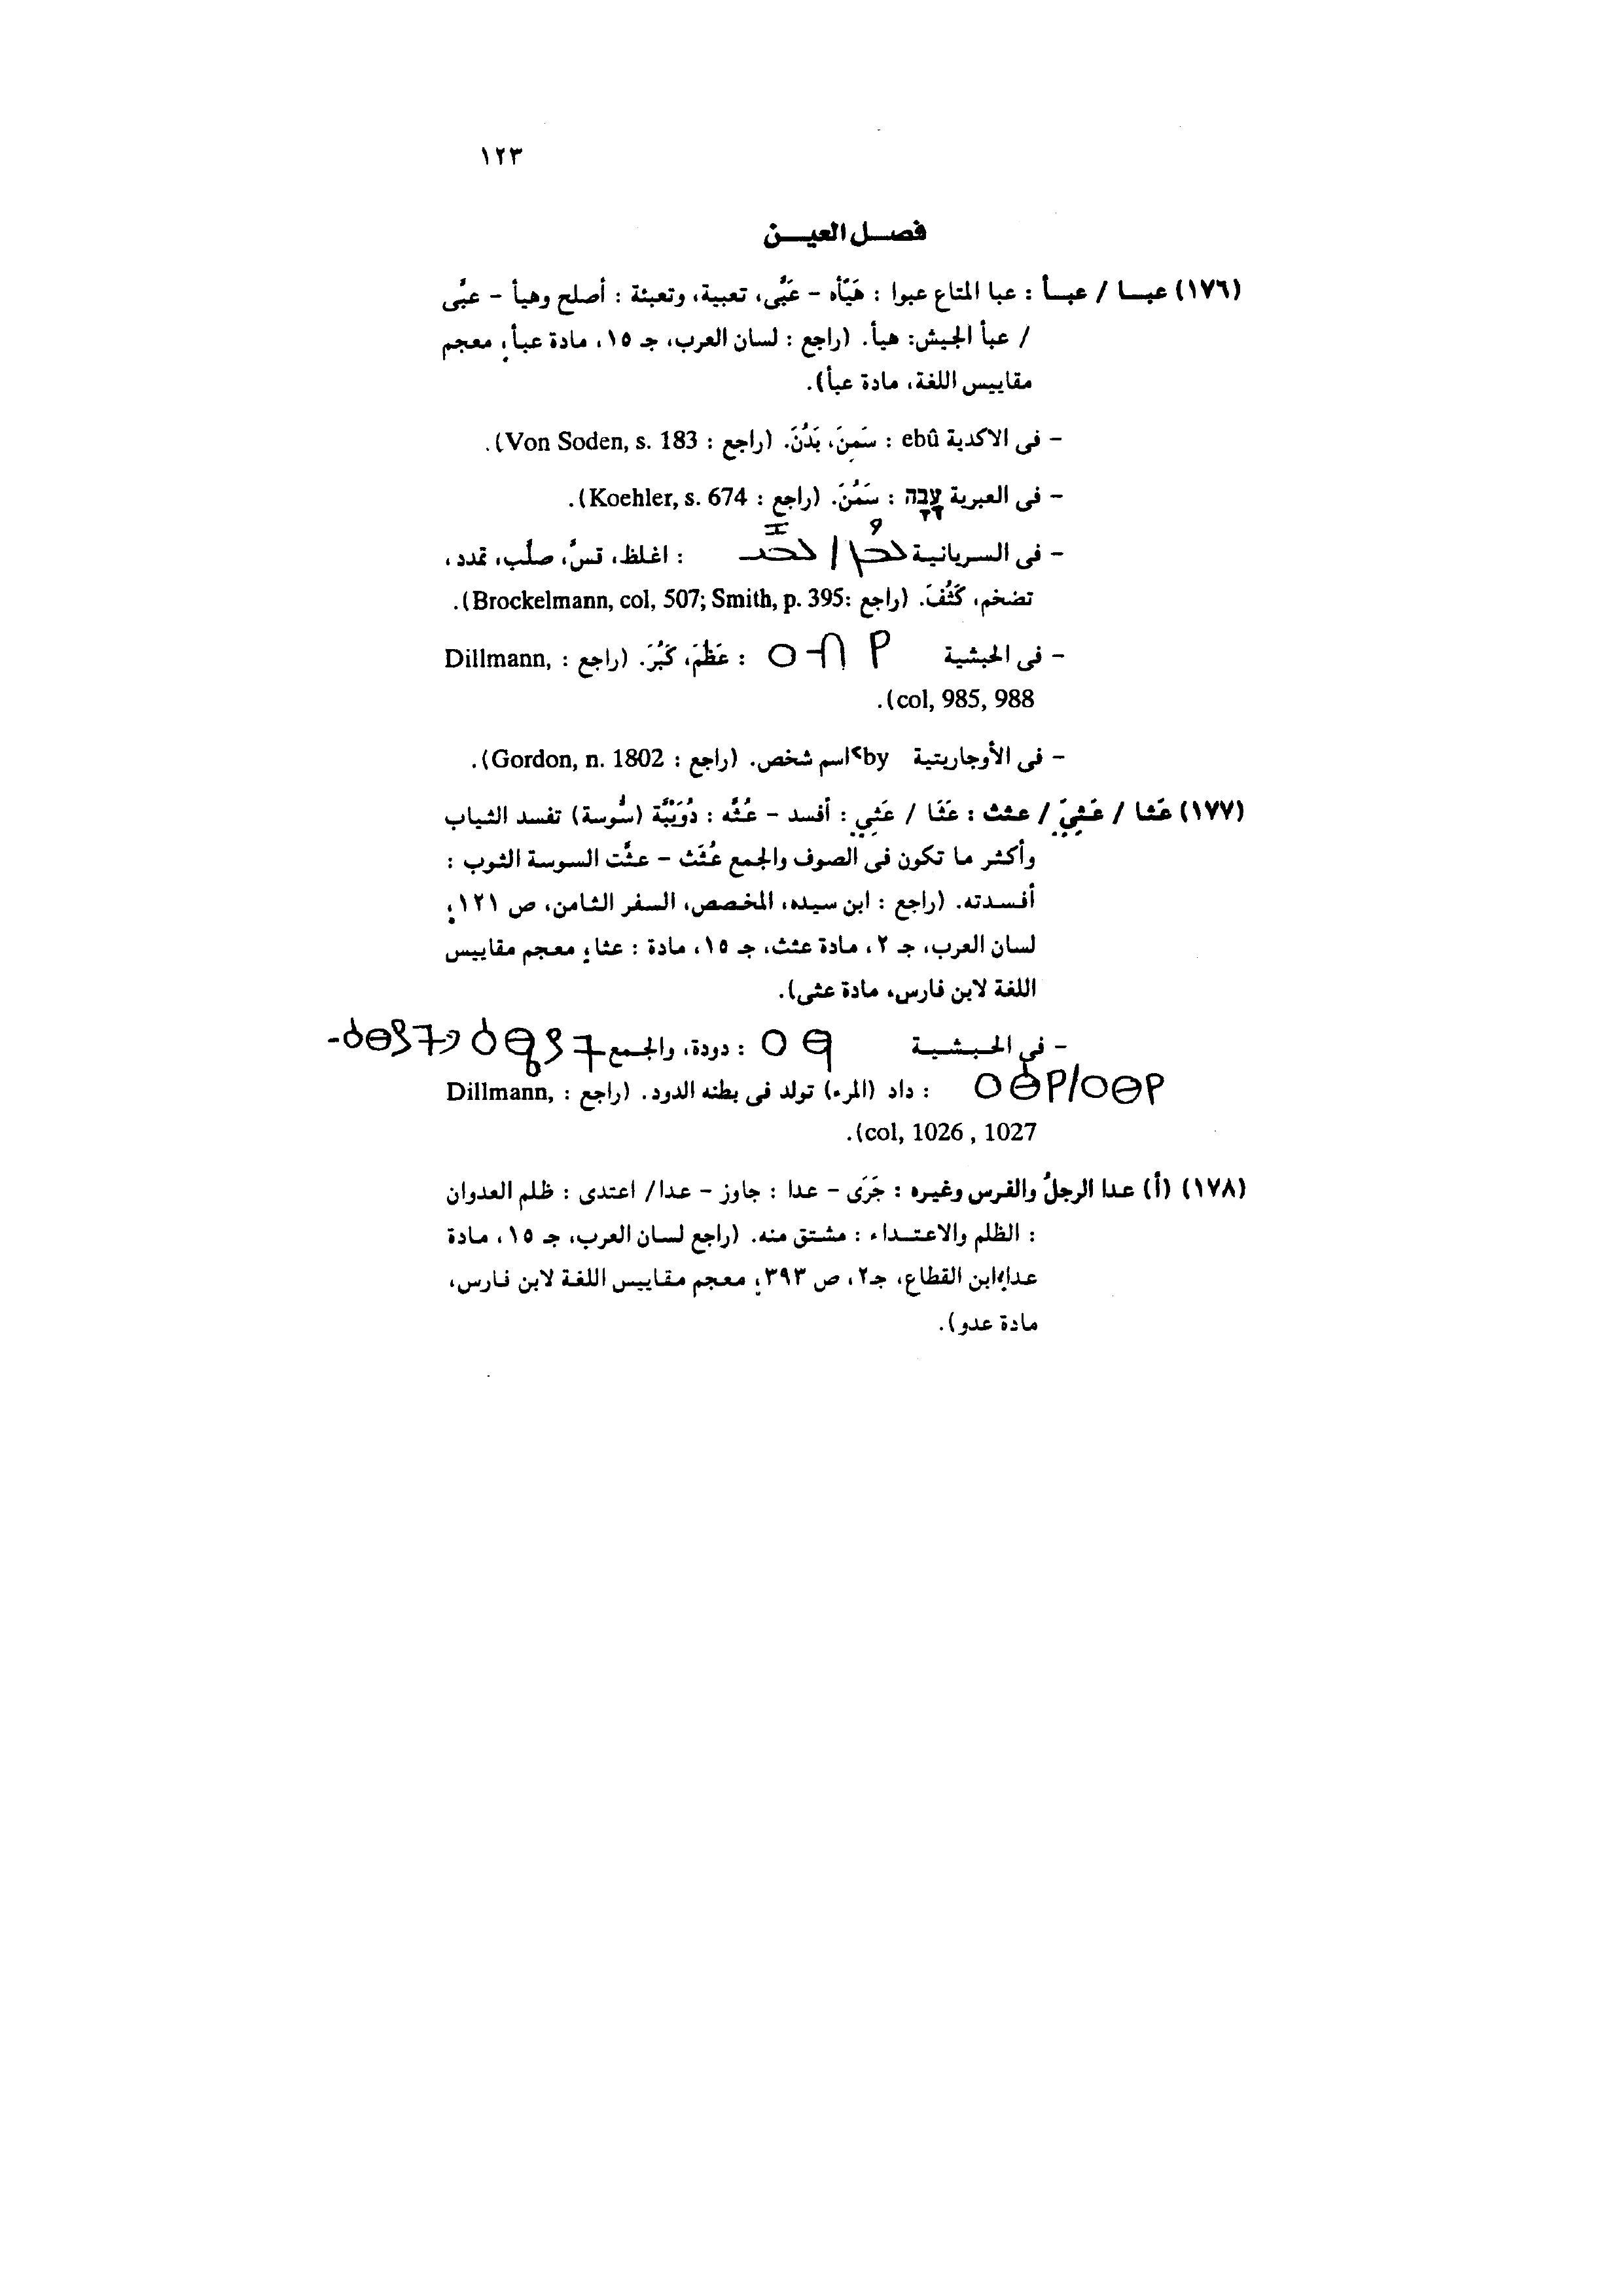 ١٢٣
فصـــل العيـــن
(١٧٦) عبـــا / عبـــأ : عبا المتاع عبوا : هَيّأه - عَبَّى، تعبية، وتعبئة : أصلح وهيأ - عبَّى
/ عبأ الجيش: هيأ. (راجع : لسان العرب، جـ ١٥، مادة عبأ؛ معجم
مقاييس اللغة، مادة عبأ).
- فى الاكدية ebû : سَمِنَ، بَدُنَ. (راجع : Von Soden, s. 183).
- فى العبرية עָבָה : سَمُنَ. (راجع : Koehler, s. 674).
- فى السريانية : اغلظ، تسَّ، صلَّب، تمدد،
تضخم، كَثُفَ. (راجع :Brockelmann, col, 507; Smith, p. 395).
- فى الحبشية ዐብየ : عَظُمَ، كَبُرَ. (راجع : Dillmann,
col, 985, 988).
- فى الأوجاريتية ʿby اسم شخص. (راجع : Gordon, n. 1802).
(١٧٧) عَثا / عَثِيَ / عثث : عَثَا / عَثِي : أفسد - عُثَّه : دُوَيْبَّة (سُّوسة) تفسد الثياب
وأكثر ما تكون فى الصوف والجمع عُثَث - عثَّت السوسة الثوب :
أفسدته. (راجع : ابن سيده، المخصص، السفر الثامن، ص ١٢١؛
لسان العرب، جـ ٢، مادة عثث، جـ ١٥، مادة : عثا؛ معجم مقاييس
اللغة لابن فارس، مادة عثى).
- فى الحبشية ዐፄ : دودة، والجمع
ዐፅየ/ዐፀየ : داد (المرء) تولد فى بطنه الدود. (راجع : Dillmann,
col, 1026 , 1027).
(١٧٨) (أ) عدا الرجلُ والفرس وغيره : جَرَى - عدا : جاوز - عدا/ اعتدى : ظلم العدوان
: الظلم والاعتــداء : مشتق منه. (راجع لسان العرب، جـ ١٥، مادة
عدا؛ابن القطاع، جـ٢، ص ٣٩٣؛ معجم مقاييس اللغة لابن فارس،
مادة عدو).